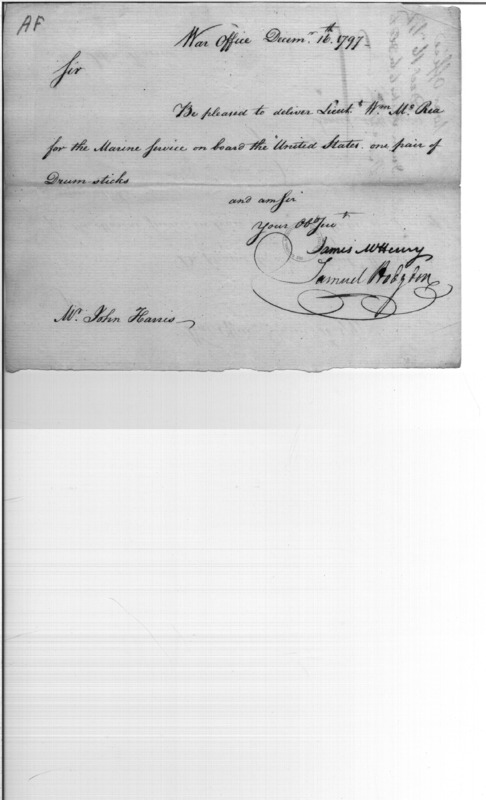 AF
War Office Decemr. 16th. 1797
Sir
Be pleased to deliver Lieutt. Wm. McRea
for the Marine Service on board the United States. one pair of
Drum sticks
and am Sir
Your Obt Servt
James McHenry
Samuel Hodgdon
Mr. John Harris